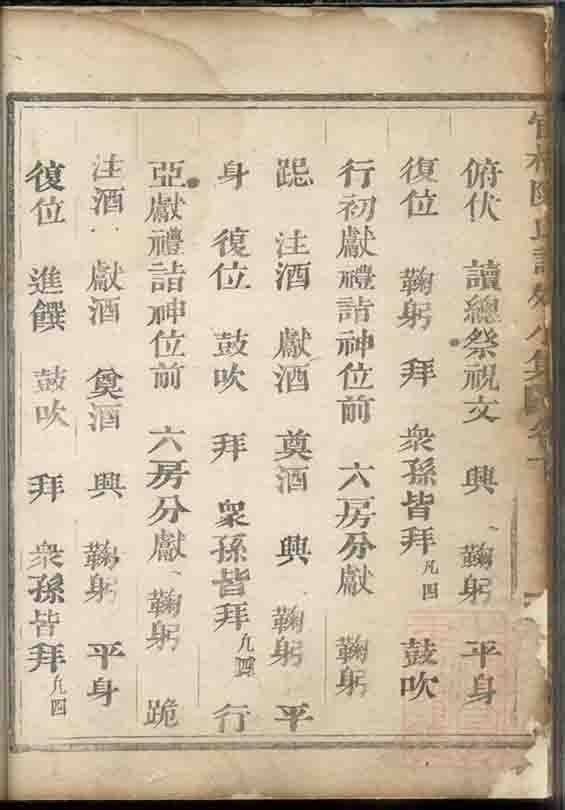 俯伏 讀總祭祝文 興 鞠躬 平身
復位 鞠躬 拜 衆孫皆拜凡四 鼓吹
行初獻禮詣神位前 六房分獻 鞠躬
跪 注酒 獻酒 奠酒 興 鞠躬 平
身 復位 鼓吹 拜 衆孫皆拜凡四 行
亞獻禮詣神位前 六房分獻 鞠躬 跪
注酒 獻酒 奠酒 興 鞠躬 平身
復位 進饌 鼓吹 拜 衆孫皆拜凡四